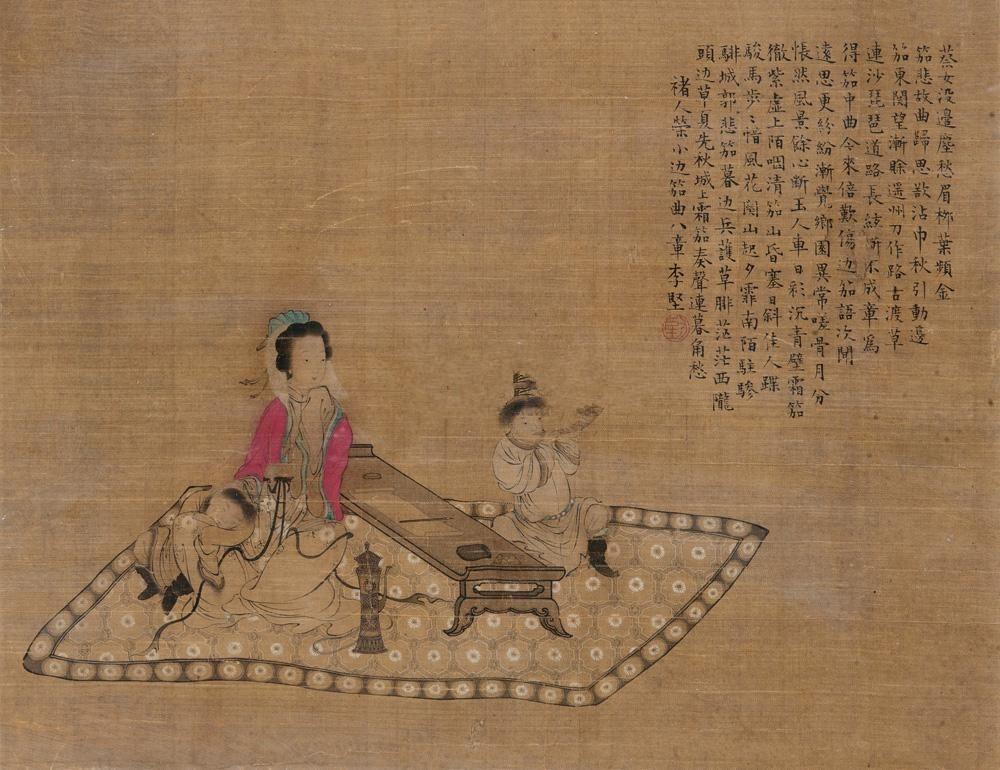 蔡女没邊塵愁眉柳葉頻金
笳悲故曲歸思歆沾巾秋引動邊
笳東関望漸賒遥州刀作路古渡草
連沙琵琶道路長絃所不成章為
得笳中曲令來倍歎傷边笳語次聞
遠思更紛紛漸覺鄉園異常嗟骨月分
悵然風景餘心断玉人車日彩沉青壁霜笳
徹紫虚上陌咽清笳山昏塞日斜佳人蹀
駿馬步〻惜風花関山起夕霏南陌駐驂
騑城郭悲笳暮边兵護草腓茫茫西隴
頭边草夏先秋城上霜笳奏聲連暮角愁
禇人荣小边笳曲八章李堅